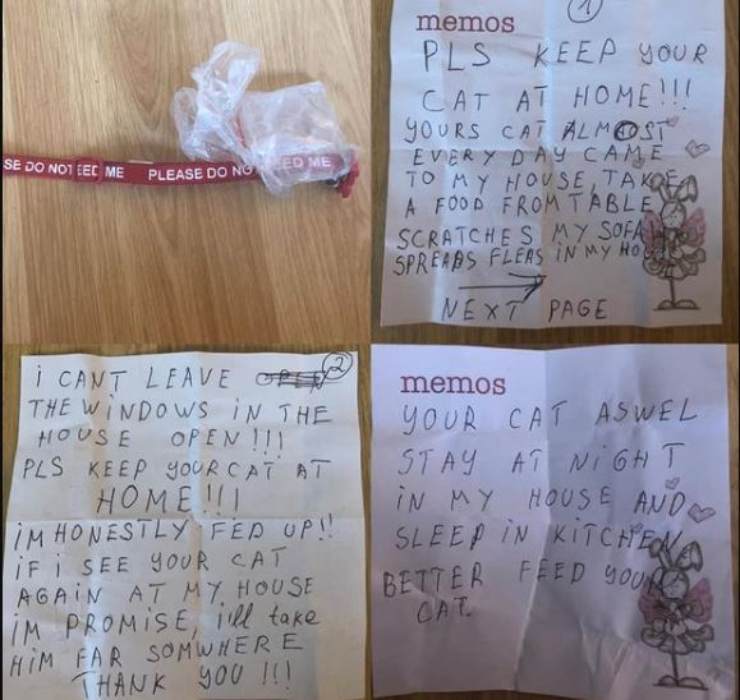 SE DO NOT EED ME PLEASE DO NO EED ME
1
memos
PLS KEEP YOUR
CAT AT HOME!!!
YOURS CAT ALMOST
EVERY DAY CAME
TO MY HOUSE, TAKOE
A FOOD FROM TABLE,
SCRATCHES MY SOFA
SPREADS FLEAS IN MY HO
NEXT PAGE
2
i CANT LEAVE
THE WiNDOWS iN THE
HOUSE OPEN!!!
PLS KEEP YOUR CAT AT
HOME!!!
iM HONESTLY FED UP!!
iF i SEE YOUR CAT
AGAiN AT MY HOUSE
iM PROMISE, i'll take
HiM FAR SOMWHERE
THANK YOU !!!
memos
YOUR CAT ASWEL
STAY AT NiGHT
iN MY HOUSE AND
SLEEP iN KiTCHEN,
BETTER FEED YOUR
CAT.